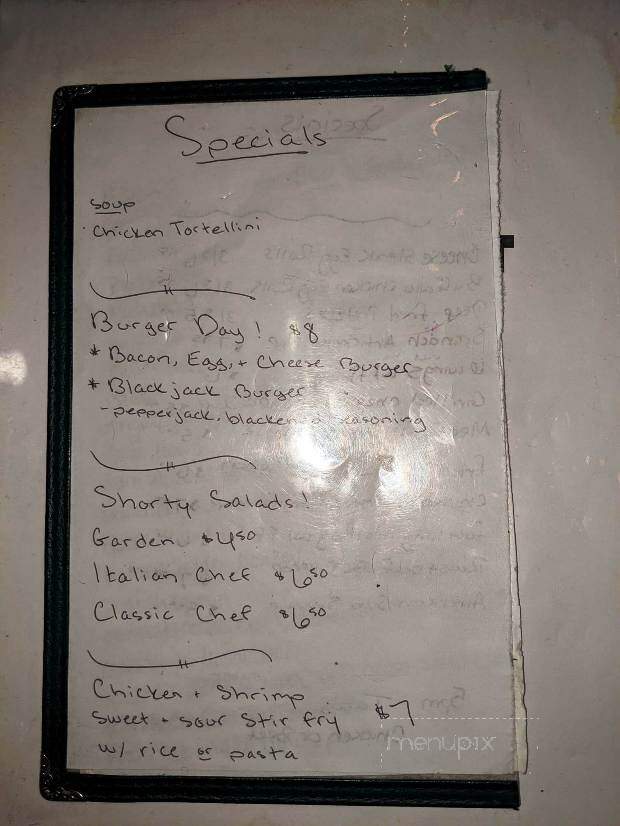 Specials
Soup
· Chicken Tortellini
Burger Day! $8
* Bacon, Egg, + Cheese Burger
* Blackjack Burger
- pepperjack, blackened seasoning
Shorty Salads!
Garden $4.50
Italian Chef $6.50
Classic Chef $6.50
Chicken + Shrimp
Sweet + Sour Stir fry $7
w/ rice or pasta
menupix